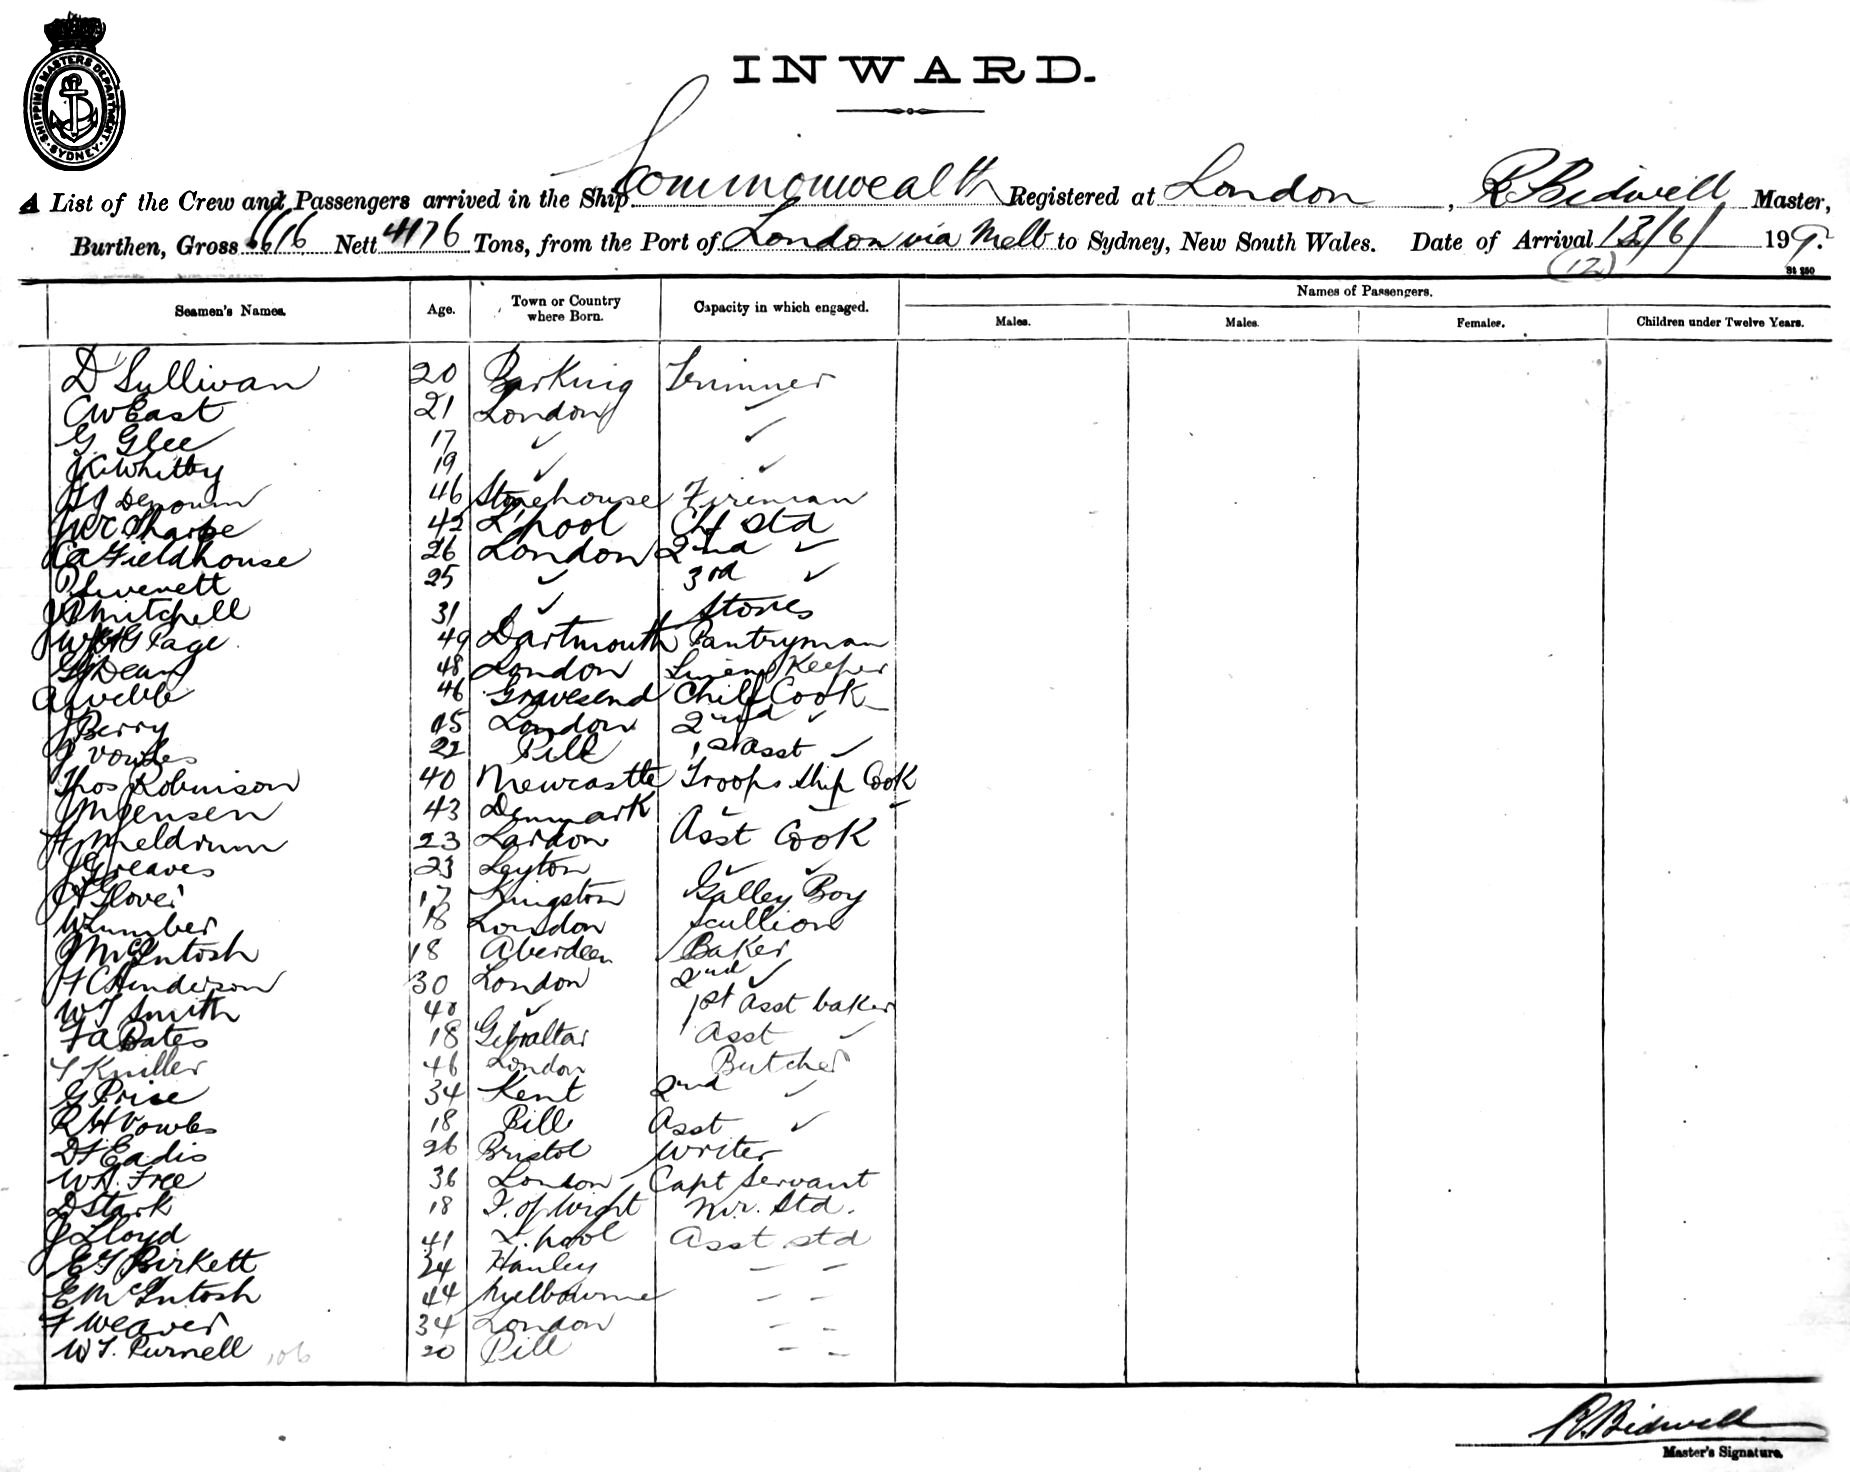 SHIPPING MASTERS DEPARTMENT
SYDNEY
INWARD.
A List of the Crew and Passengers arrived in the Ship Commonwealth Registered at London, R Bidwell Master,
Burthen, Gross 6616 Nett 4176 Tons, from the Port of London via Melb to Sydney, New South Wales. Date of Arrival 13/6/ 199.
(12)
St 250
Names of Passengers.
Seamen's Names. Age. Town or Country where Born. Capacity in which engaged. Males. Males. Females. Children under Twelve Years.
D Sullivan 20 Barking Trimmer
CW East 21 London ✓
G Glee 17 ✓ ✓
Whitby 19 ✓ ✓
46 Stonehouse Fireman
Sharpe 42 L'pool Ch Std
CA Fieldhouse 26 London 2nd ✓
25 ✓ 3rd ✓
Mitchell 31 ✓ Stores
Page 49 Dartmouth Pantryman
Dean 48 London Linen Keeper
A Webb 46 Gravesend Chief Cook
J Berry London 2nd ✓
J Vowles 22 Pill 1st Asst ✓
Thos Robinson 40 Newcastle Troops Ship Cook
Jensen 43 Denmark ✓ ✓ ✓
H Meldrum 23 London Asst Cook
J Greaves 23 Leyton ✓ ✓
Glover 17 Kingston Galley Boy
W Lumber 18 London Scullion
J McIntosh 18 Aberdeen Baker
F C Henderson 30 London 2nd ✓
WJ Smith 40 ✓ 1st Asst baker
FA Bates 18 Gibraltar Asst ✓
Kniller 46 London Butcher
G Price 34 Kent 2nd ✓
R H Vowles 18 Pill Asst ✓
DF Eadis 26 Bristol Writer
WA. Free 36 London Capt Servant
D Stark 18 I. of Wight Mr. Std.
J Lloyd 41 L.pool Asst std
EG Birkett 34 Hanley - -
E McIntosh 44 Melbourne - -
F Weaver 34 London - -
WJ. Purnell 106 20 Pill - -
R. Bidwell
Master's Signature.